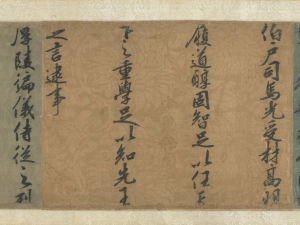 伯户司馬光受材高明
履道醇固智足以任天
下之重學足以知先王
之言逮事
厚陵徧儀侍從之列